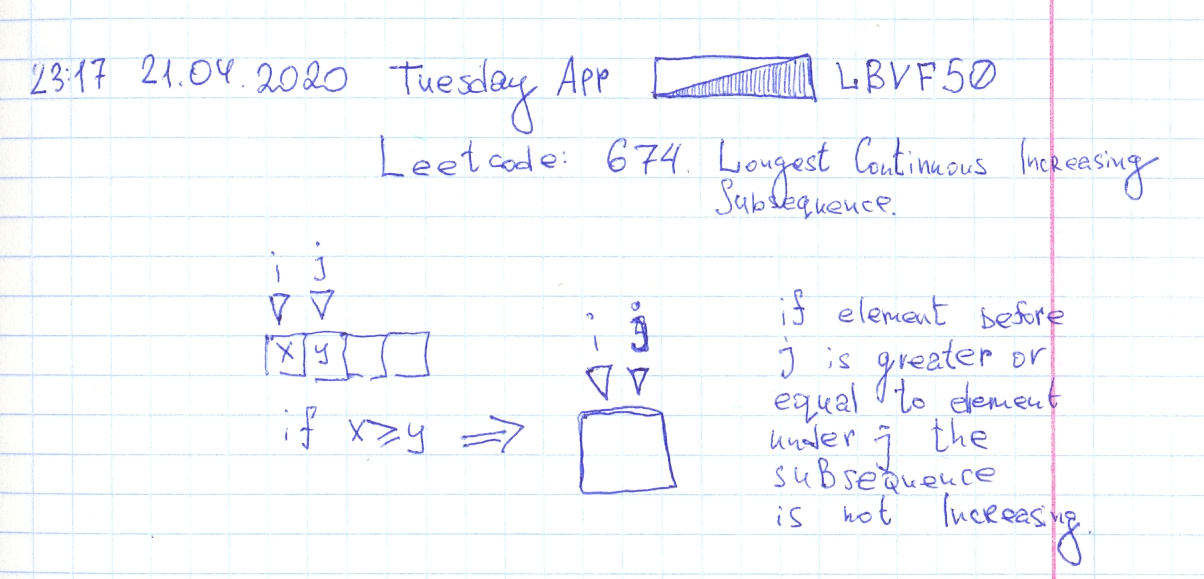 23:17 21.04.2020 Tuesday App LBVF50
Leetcode: 674. Longest Continuous Increasing
Subsequence.
i j
x y
if x ≥ y ⇒
i j
if element before
j is greater or
equal to element
under j the
subsequence
is not Increasing.